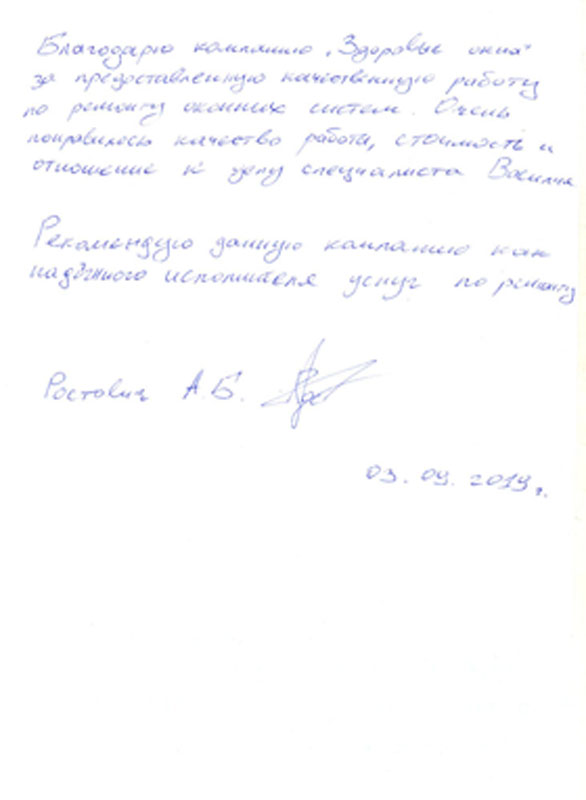 Благодарю компанию "Здоровые окна"
за предоставленную качественную работу
по ремонту оконных систем. Очень
понравилось качество работы, стоимость и
отношение к делу специалиста
Рекомендую данную компанию как
надёжного исполнителя услуг по ремонту
А.Б.
03.09.2019 г.